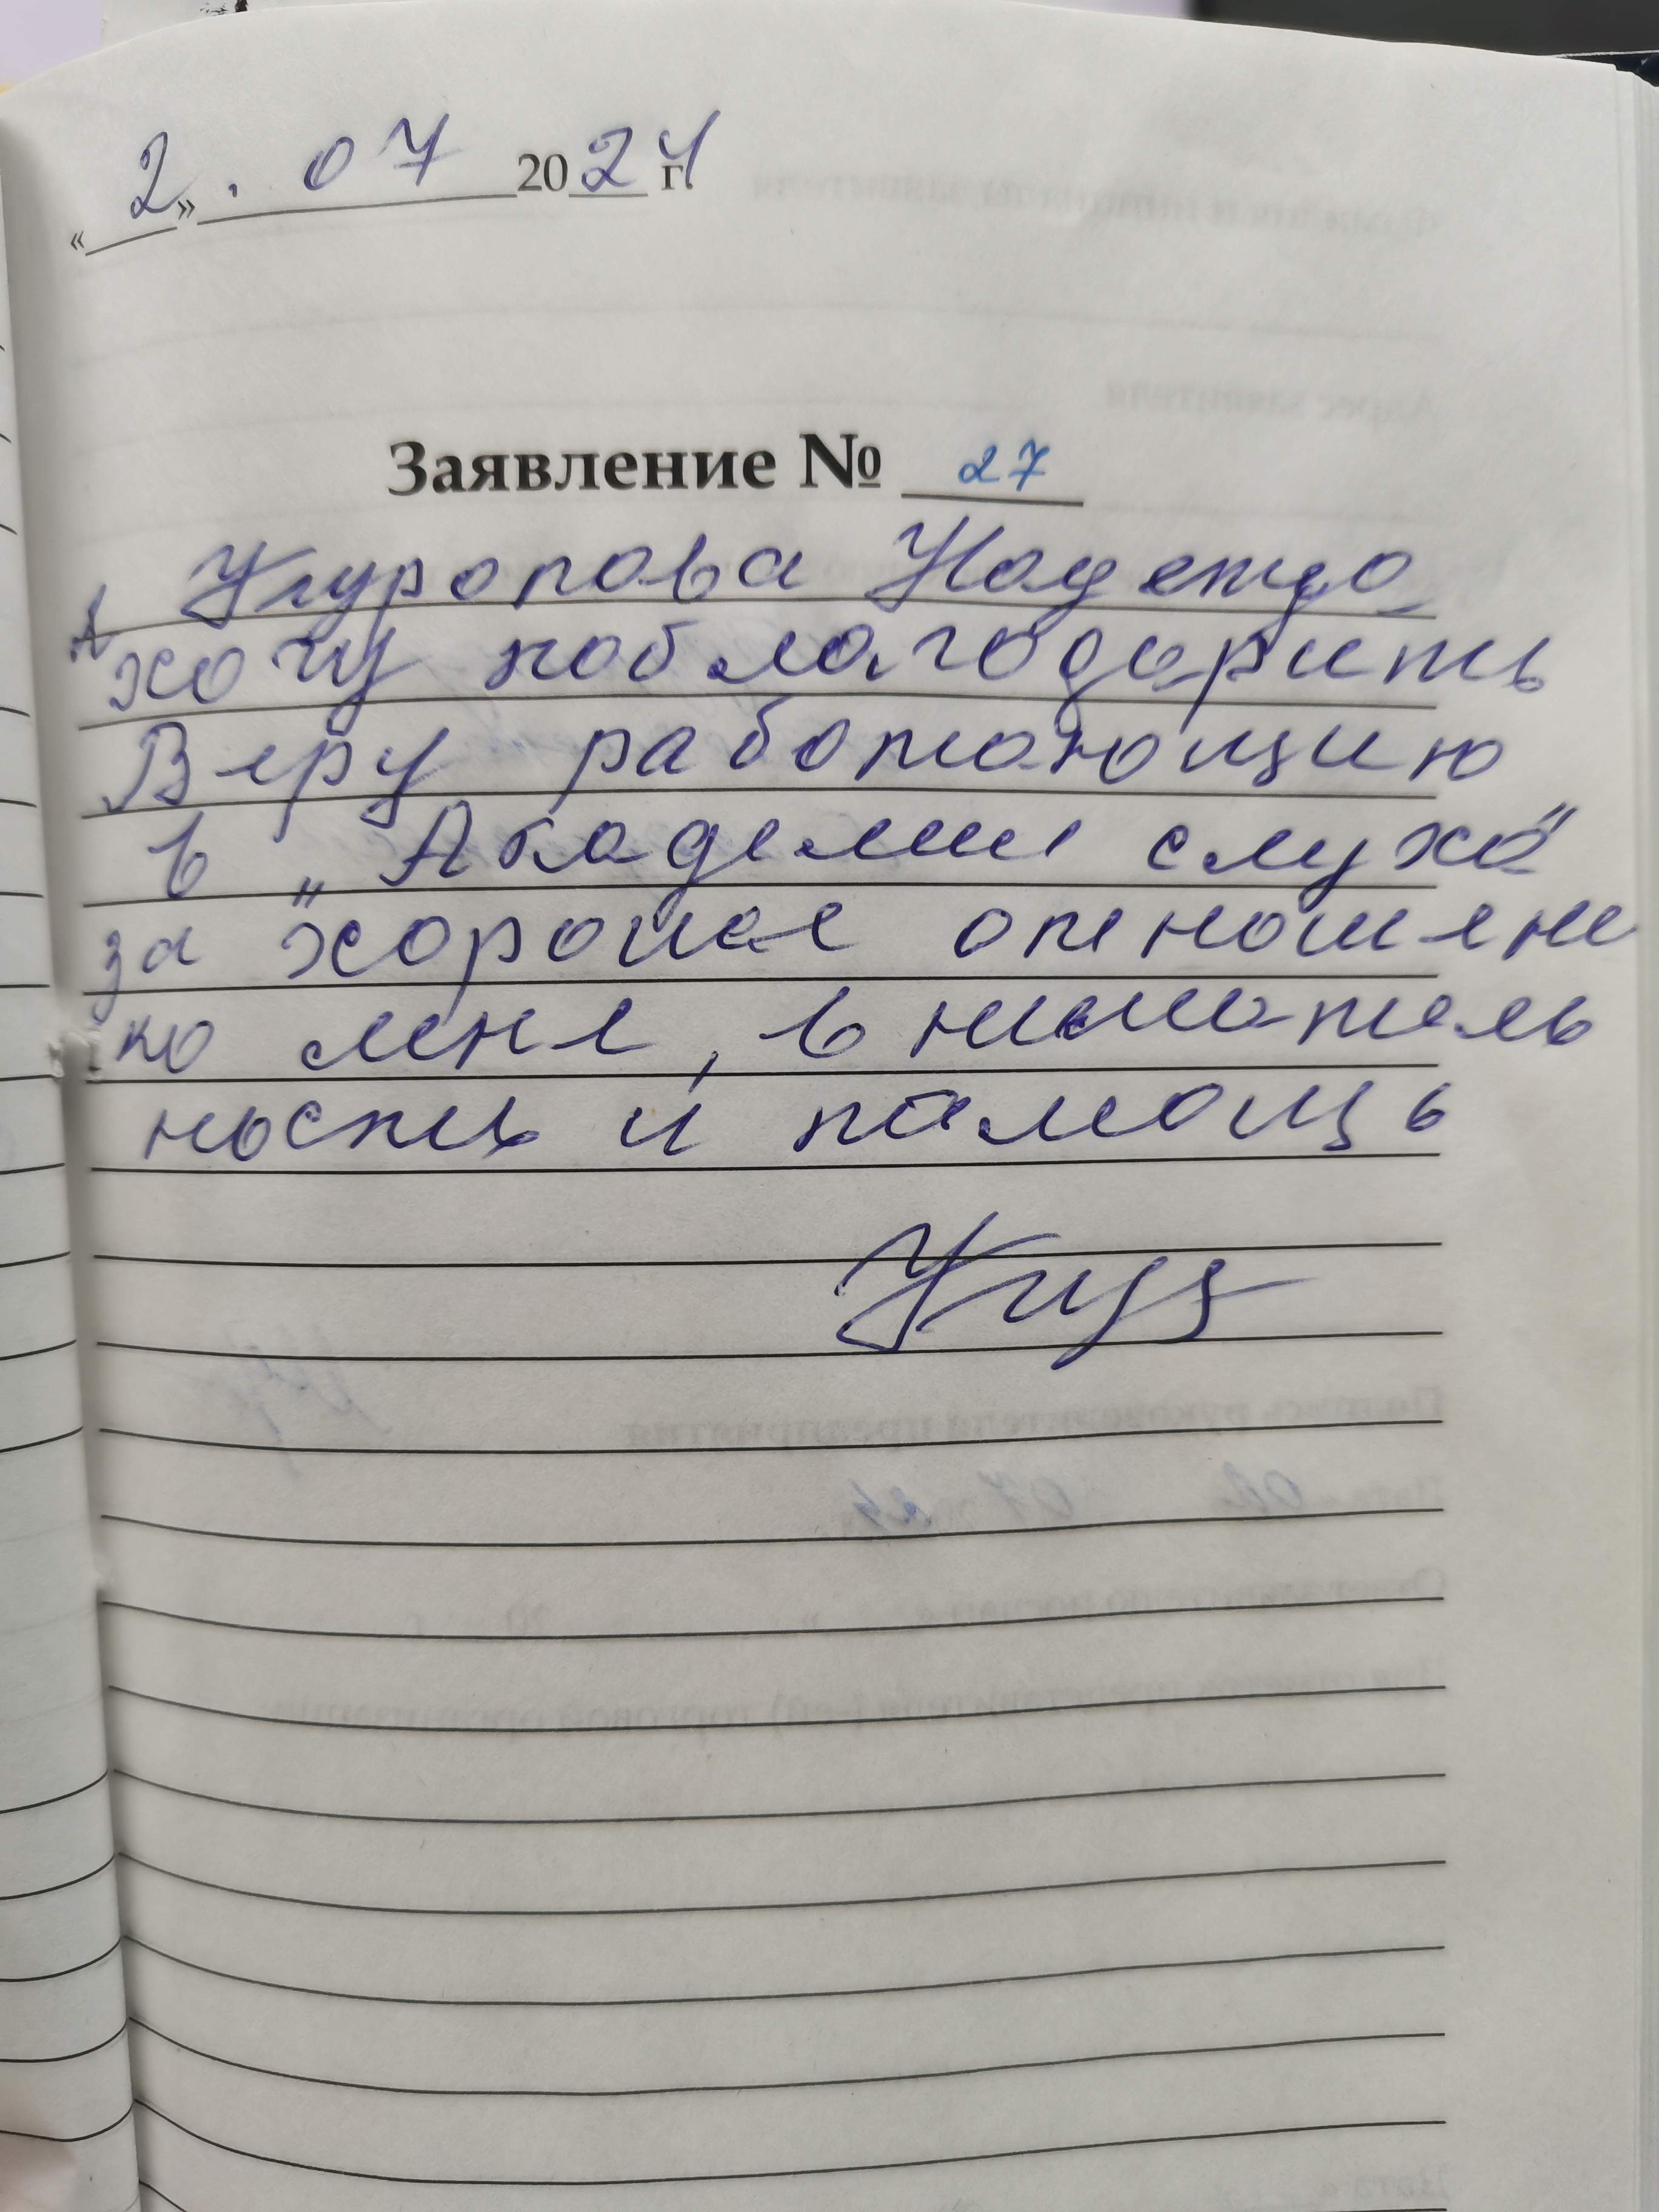 «2». 07 2024 г.
Заявление № 27
Я Журопова Надежда
хочу поблагодарить
Веру работающию
в „Академии слуха"
за хорошее отношене
ко мне, вниматель
ность и помощь